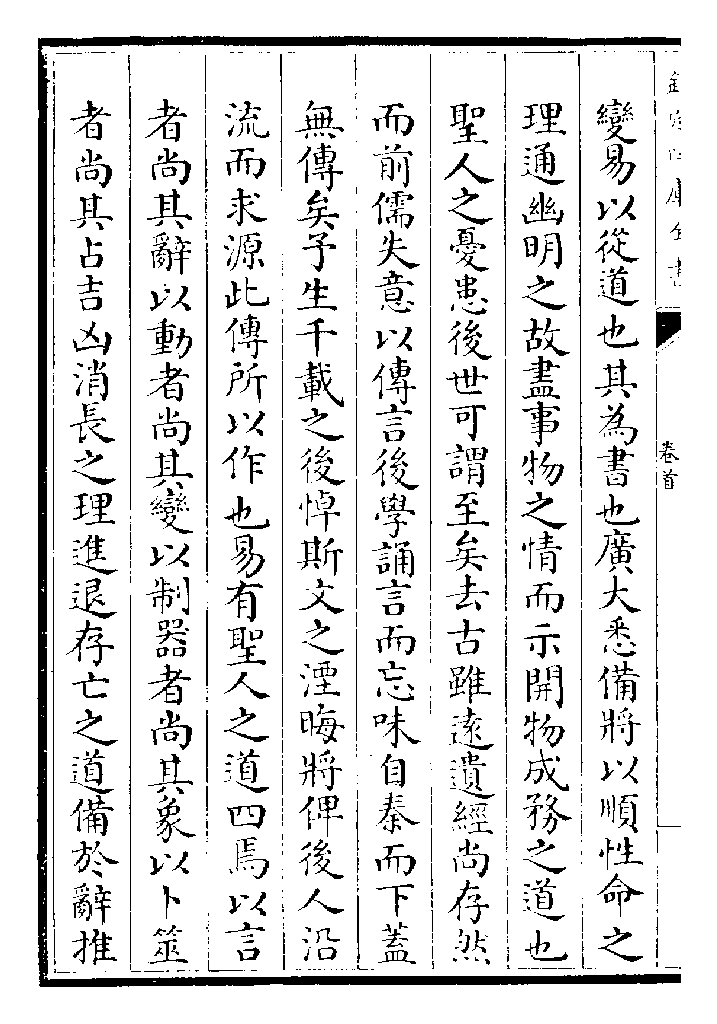 欽定四庫全書
卷首
變易以從道也其為書也廣大悉備將以順性命之
理通幽明之故盡事物之情而示開物成務之道也
聖人之憂患後世可謂至矣去古雖逺遺經尚存然
而前儒失意以傳言後學誦言而忘味自秦而下蓋
無傳矣予生千載之後悼斯文之湮晦將俾後人沿
流而求源此傳所以作也易有聖人之道四焉以言
者尚其辭以動者尚其變以制器者尚其象以卜筮
者尚其占吉凶消長之理進退存亡之道備於辭推